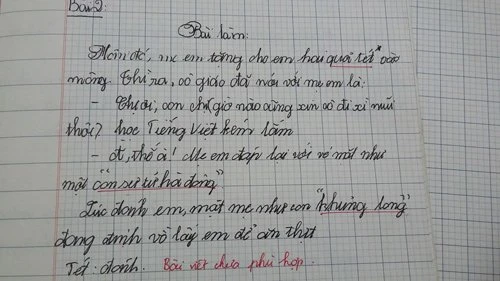 Bài 2:
Bài làm:
Hôm đó, mẹ em tặng cho em hai quả tét* vào
mông. Thì ra, cô giáo đã nói với mẹ em là:
- Chị ơi, con chị giờ nào cũng xin cô đi xì mũi
thôi? học Tiếng Việt kém lắm
- Ồ, thế à! Mẹ em đáp lại với vẻ mặt như
một "con sư tử hà đông"
Lúc đánh em, mặt mẹ như con "khủng long"
đang định vồ lấy em để ăn thịt
Tét: đánh. Bài viết chưa phù hợp.